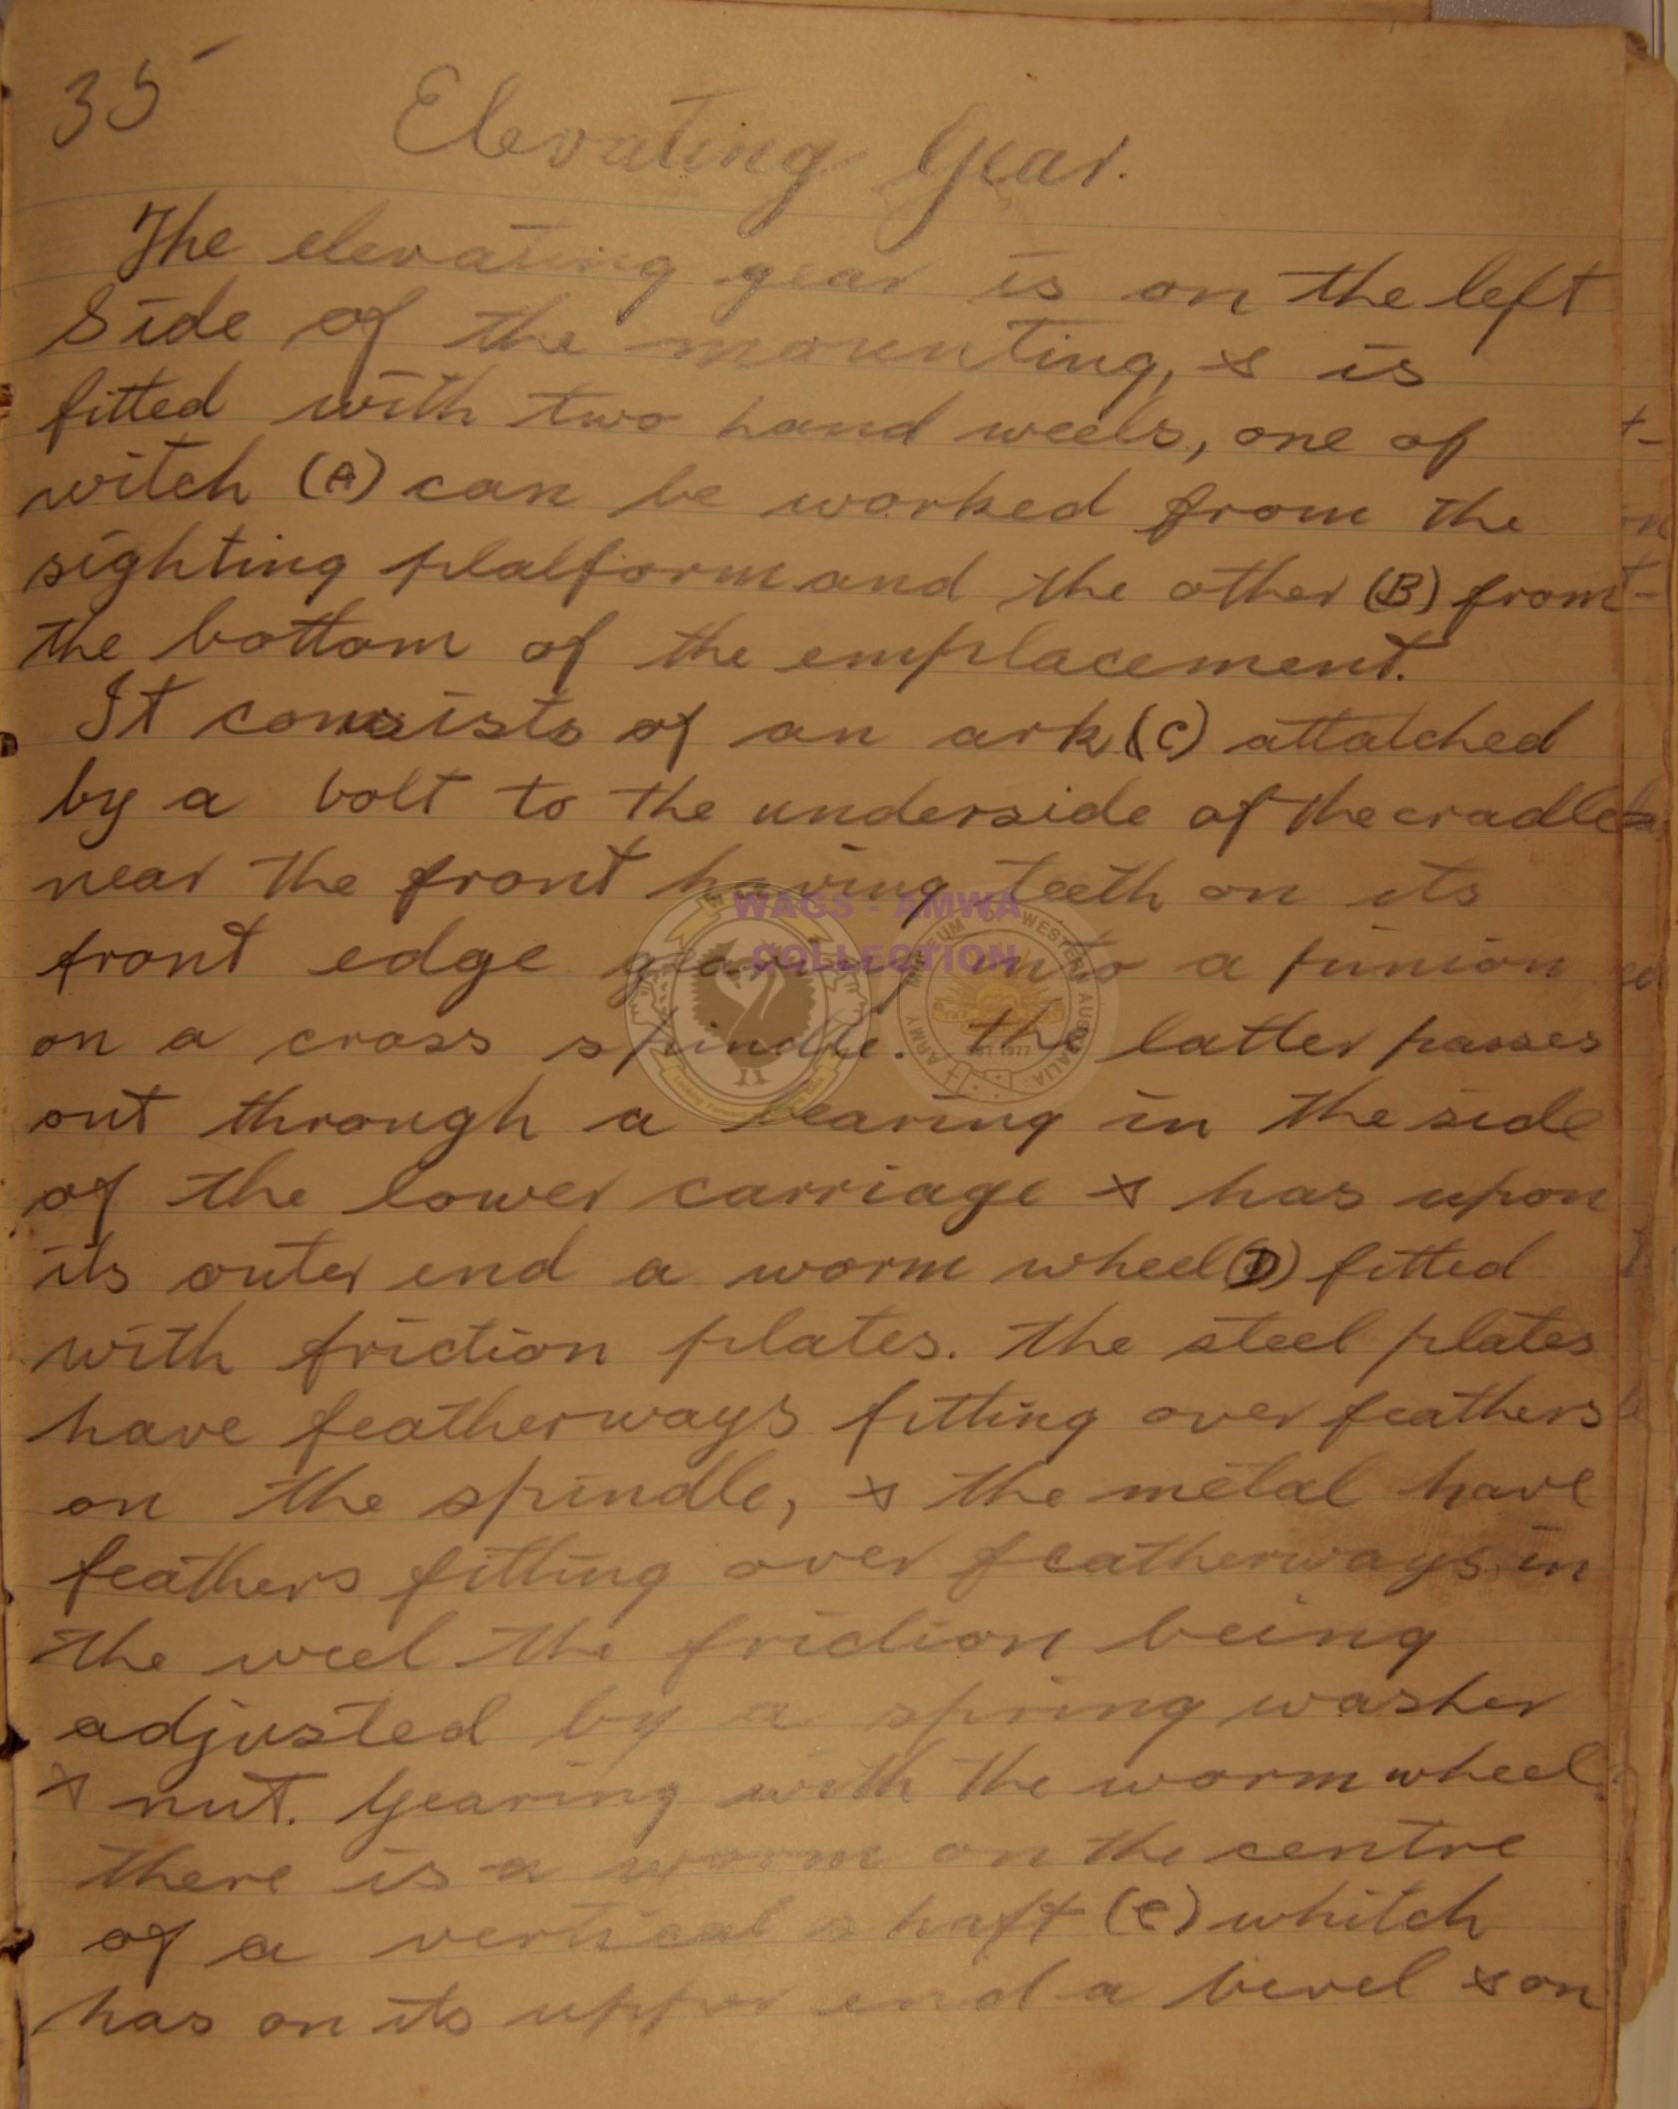 35
Elevating Gear.
The elevating gear is on the left
Side of the mounting, & is
fitted with two hand weels, one of
witch (A) can be worked from the
sighting platform and the other (B) from
the bottom of the emplacement.
It consists of an ark (C) attatched
by a bolt to the underside of the cradle
near the front having teeth on its
front edge gearing into a pinion
on a cross spindle. the latter passes
out through a bearing in the side
of the lower carriage & has upon
its outer end a worm wheel (D) fitted
with friction plates. the steel plates
have featherways fitting over feathers
on the spindle, & the metal have
feathers fitting over featherways in
the weel the friction being
adjusted by a spring washer
& nut. Gearing with the worm wheel
there is a worm on the centre
of a vertical shaft (e) whitch
has on its upper end a bevel & on
WAGS - AMWA
COLLECTION